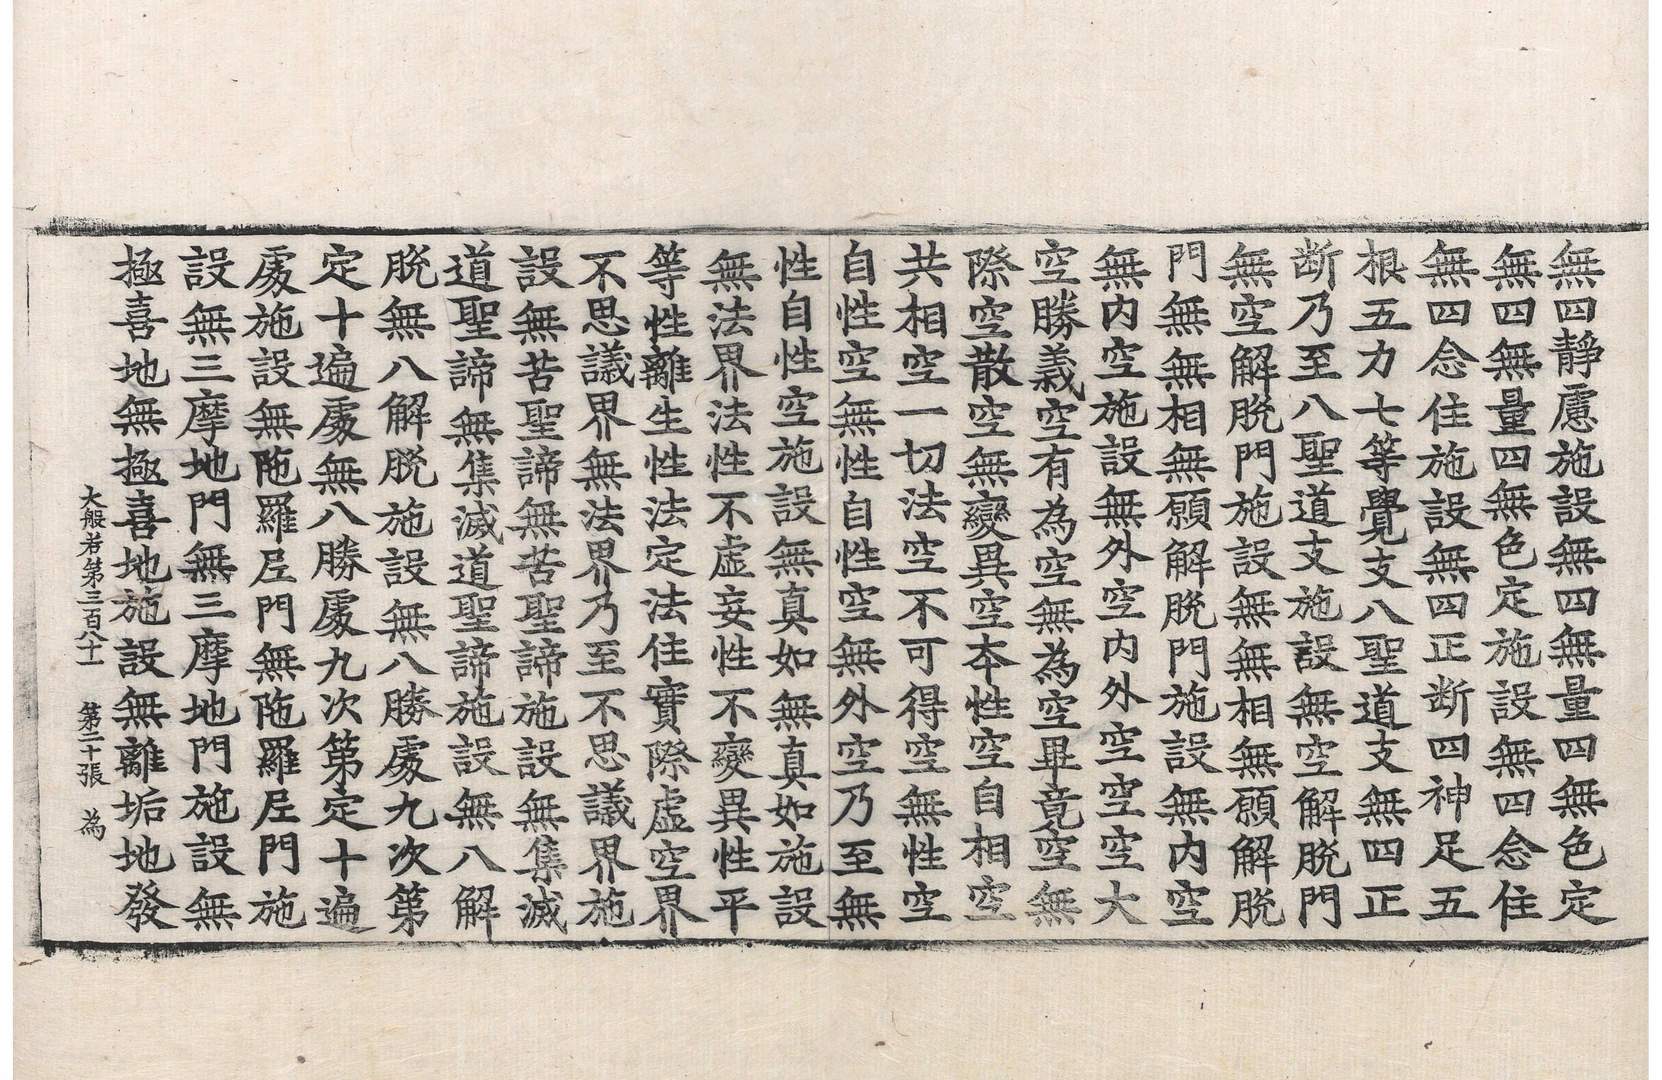 無四靜慮施設無四無量四無色定
無四無量四無色定施設無四念住
無四念住施設無四正断四神足五
根五力七等覺支八聖道支無四正
断乃至八聖道支施設無空解脫門
無空解脫門施設無無相無願解脫
門無無相無願解脫門施設無內空
無內空施設無外空內外空空空大
空勝義空有為空無為空畢竟空無
際空散空無變異空本性空自相空
共相空一切法空不可得空無性空
自性空無性自性空無外空乃至無
性自性空施設無真如無真如施設
無法界法性不虛妄性不變異性平
等性離生性法定法住實際虛空界
不思議界無法界乃至不思議界施
設無苦聖諦無苦聖諦施設無集滅
道聖諦無集滅道聖諦施設無八解
脫無八解脫施設無八勝處九次第
定十遍處無八勝處九次第定十遍
處施設無陁羅尼門無陁羅尼門施
設無三摩地門無三摩地門施設無
極喜地無極喜地施設無離垢地發
大般若第三百八十一 第二十張 為